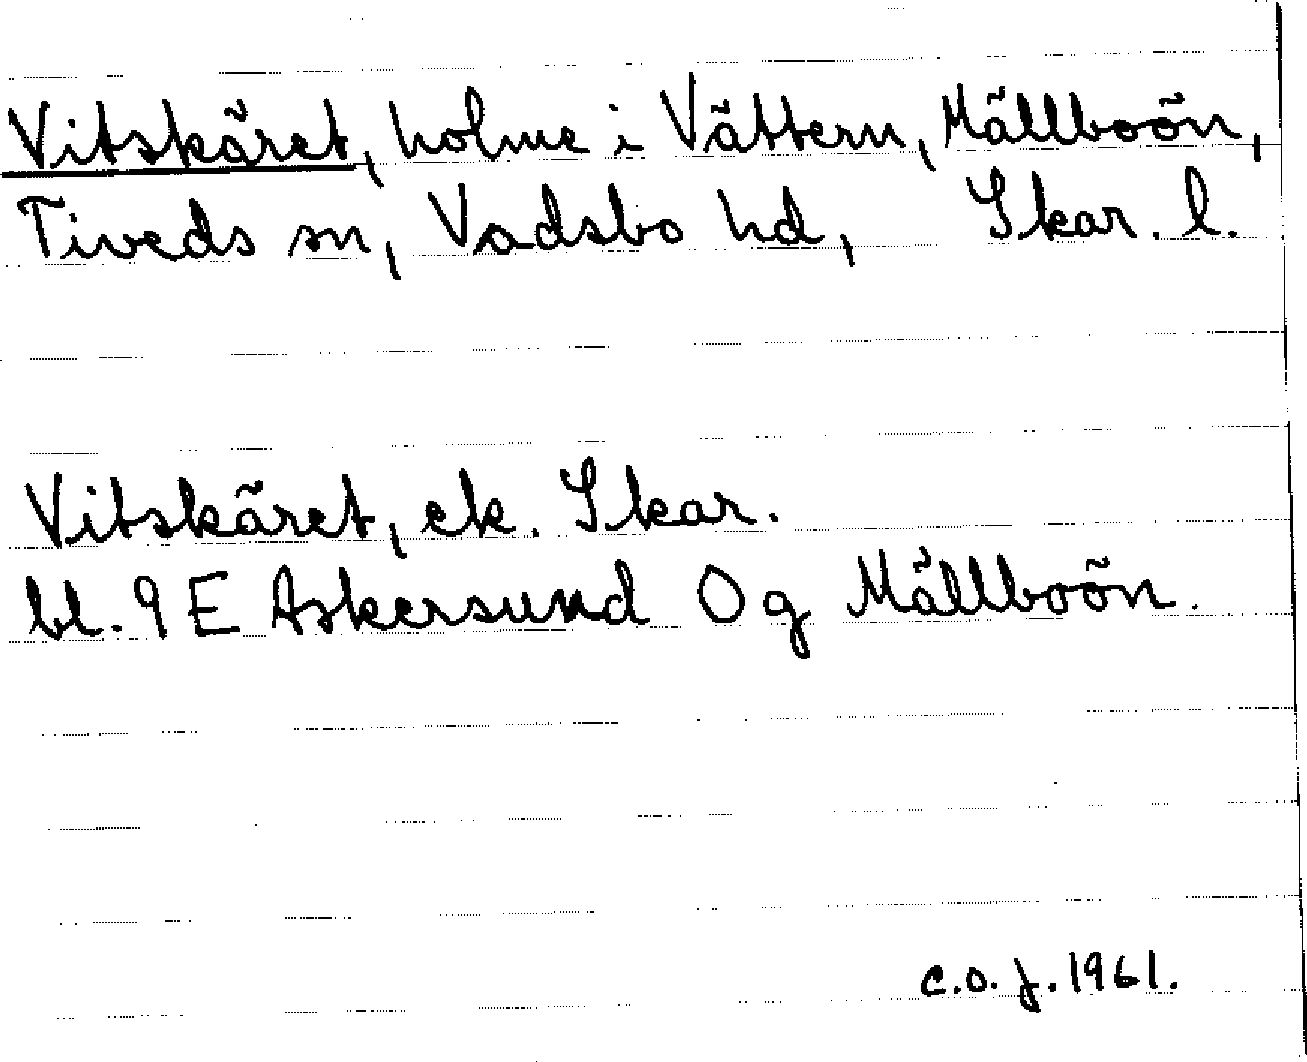 Vitskäret, holme i Vättern, Mällboön,
Tiveds sn, Vadsbo hd, Skar. l.
Vitskäret, ek. Skar.
bl. 9 E Askersund 0 g Mällboön.
C.O.J. 1961.